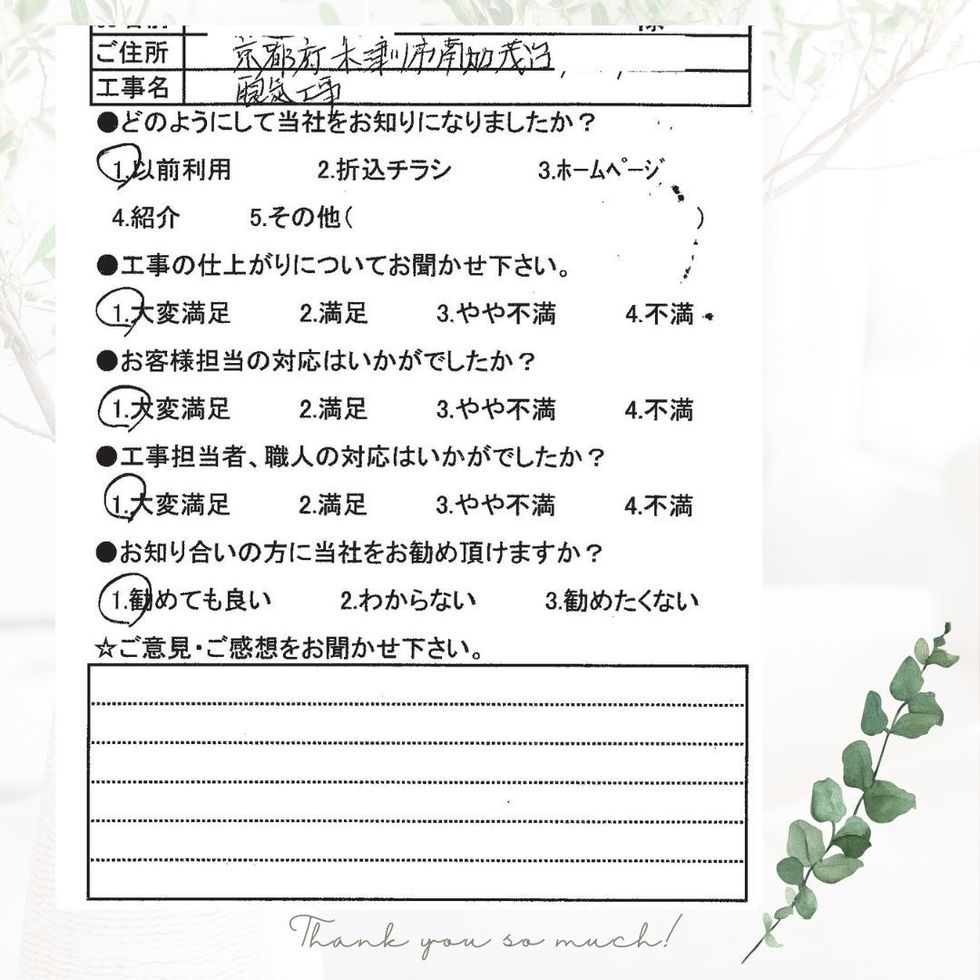 ご住所 京都府木津川市南加茂台
工事名 電気工事
●どのようにして当社をお知りになりましたか？
1.以前利用 2.折込チラシ 3.ホームページ
4.紹介 5.その他( )
●工事の仕上がりについてお聞かせ下さい。
1.大変満足 2.満足 3.やや不満 4.不満
●お客様担当の対応はいかがでしたか？
1.大変満足 2.満足 3.やや不満 4.不満
●工事担当者、職人の対応はいかがでしたか？
1.大変満足 2.満足 3.やや不満 4.不満
●お知り合いの方に当社をお勧め頂けますか？
1.勧めても良い 2.わからない 3.勧めたくない
☆ご意見・ご感想をお聞かせ下さい。
Thank you so much!